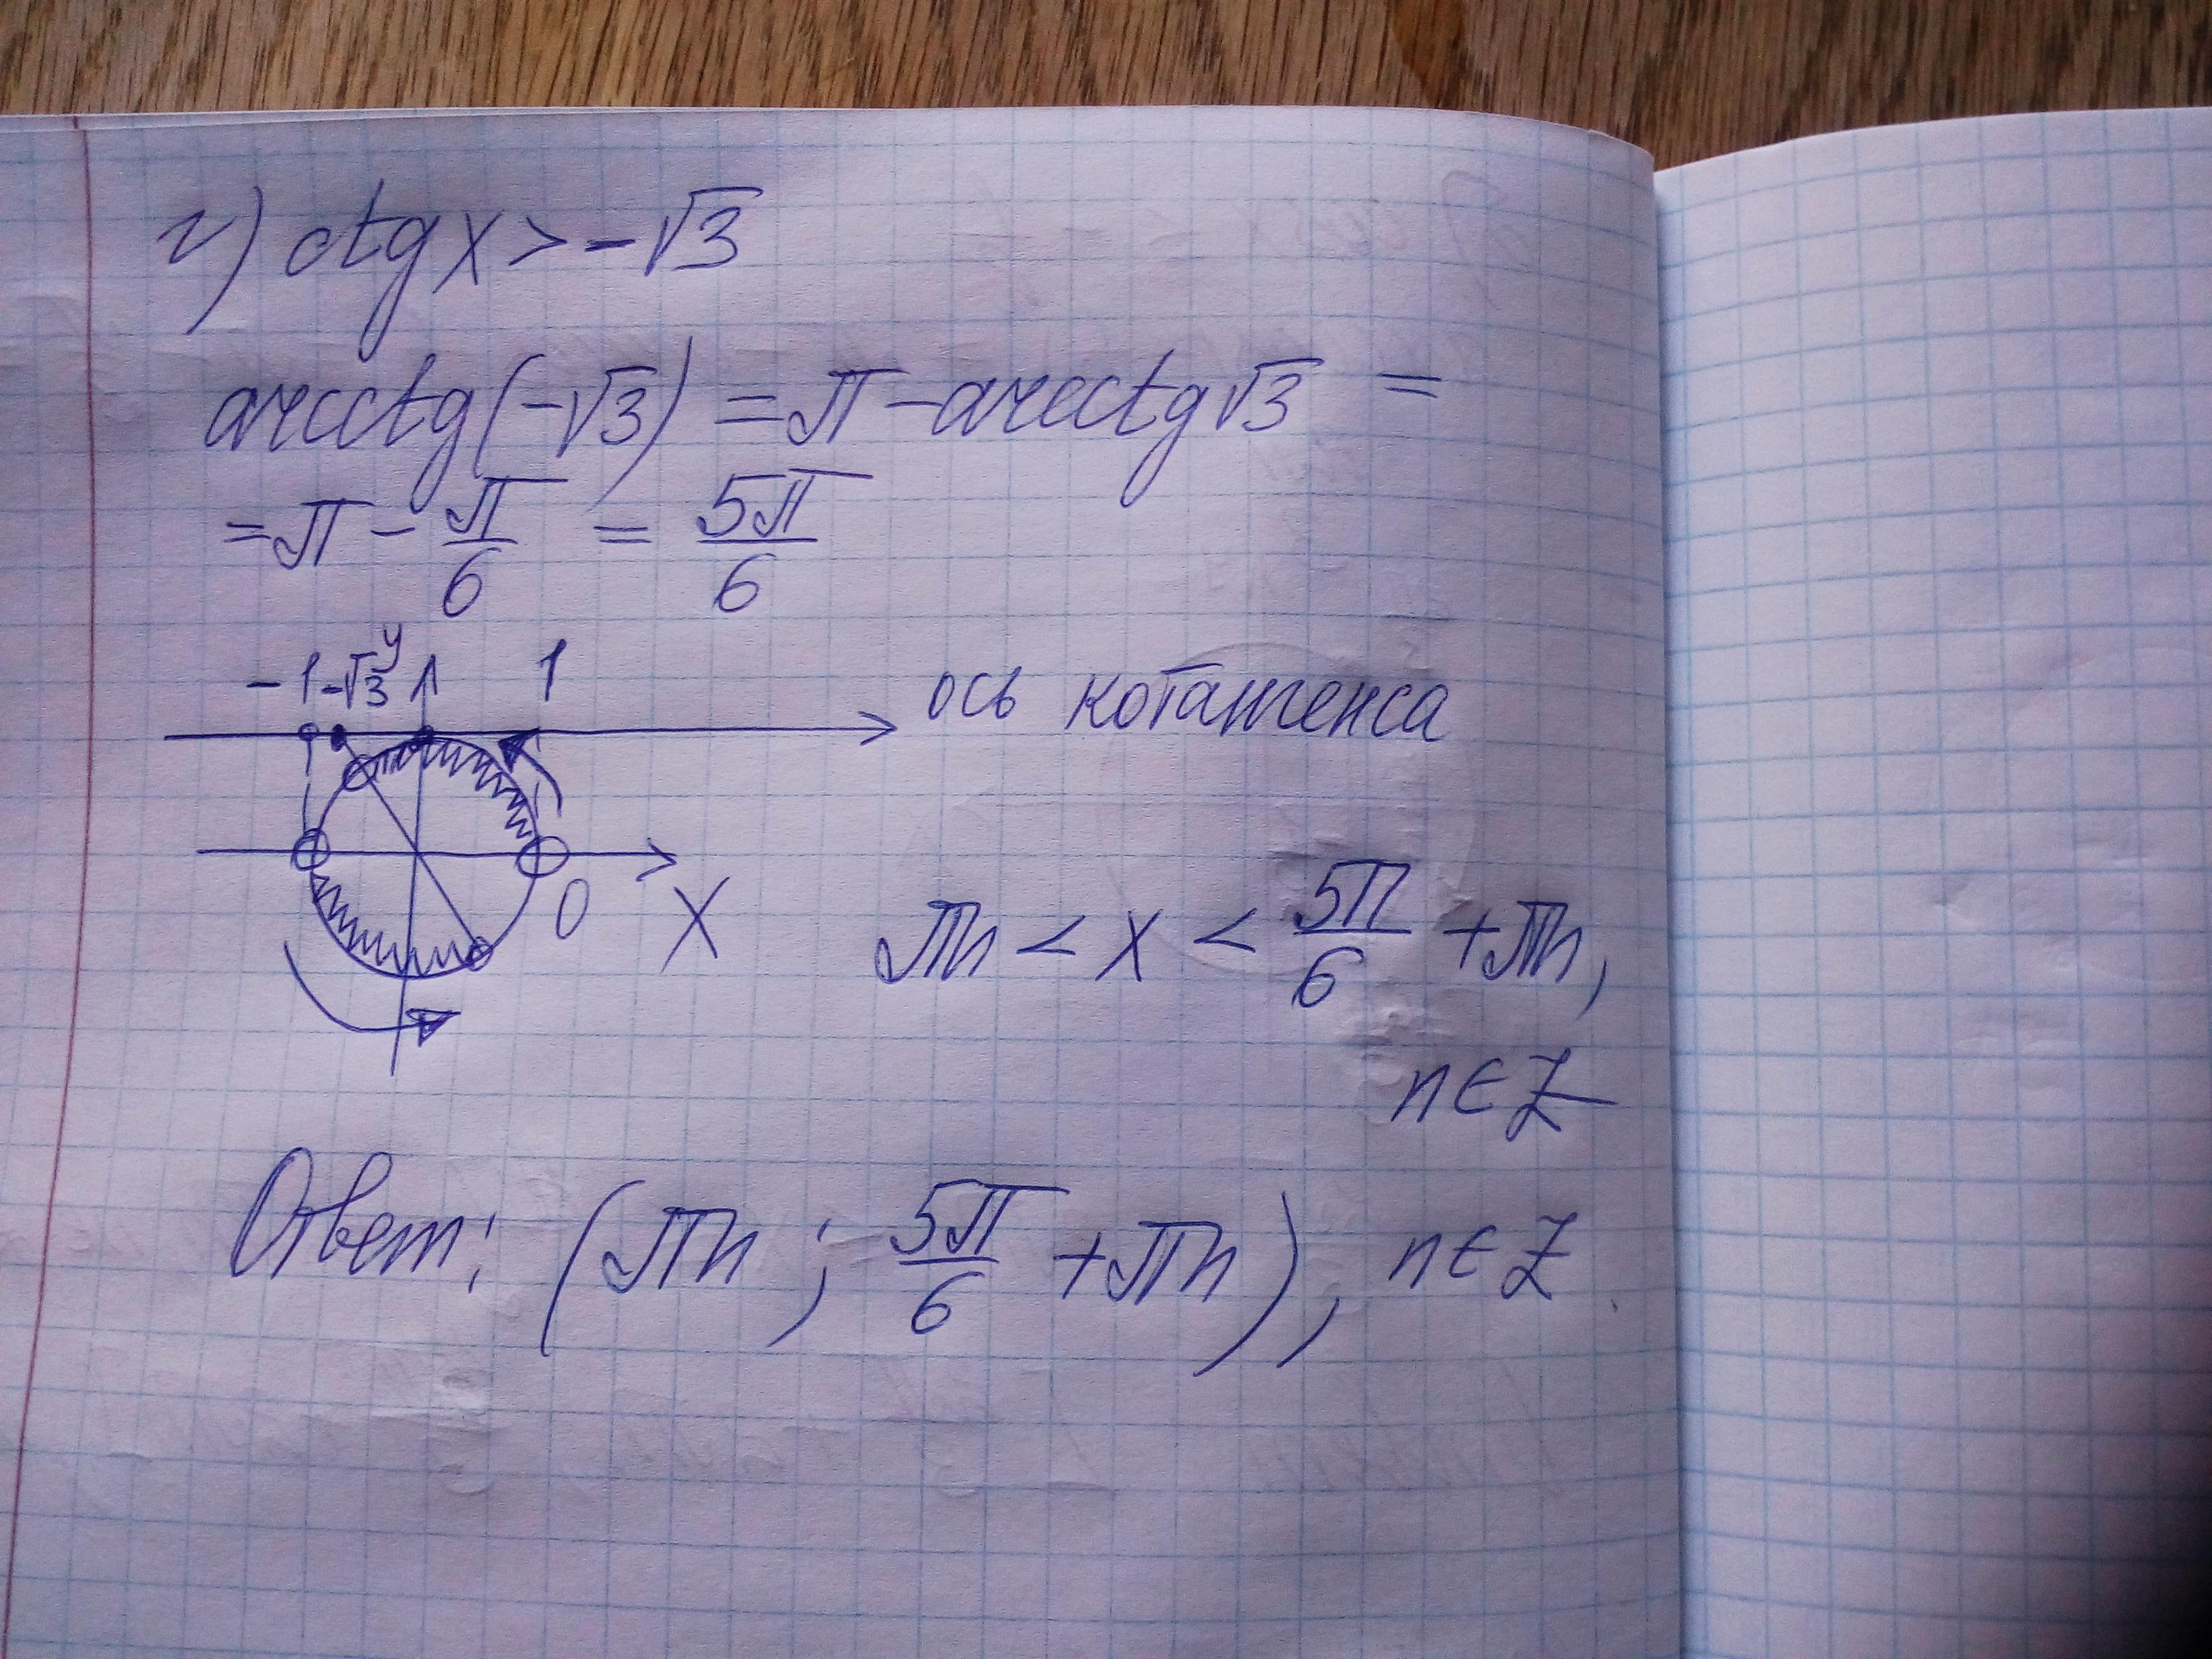 г) ctg x > -√3
arcctg(-√3) = π - arcctg √3 =
= π - π/6 = 5π/6
-1 -√3 y 1 1
ось котангенса
0 X
πn < x < 5π/6 + πn,
n∈Z
Ответ: (πn ; 5π/6 + πn), n∈Z.